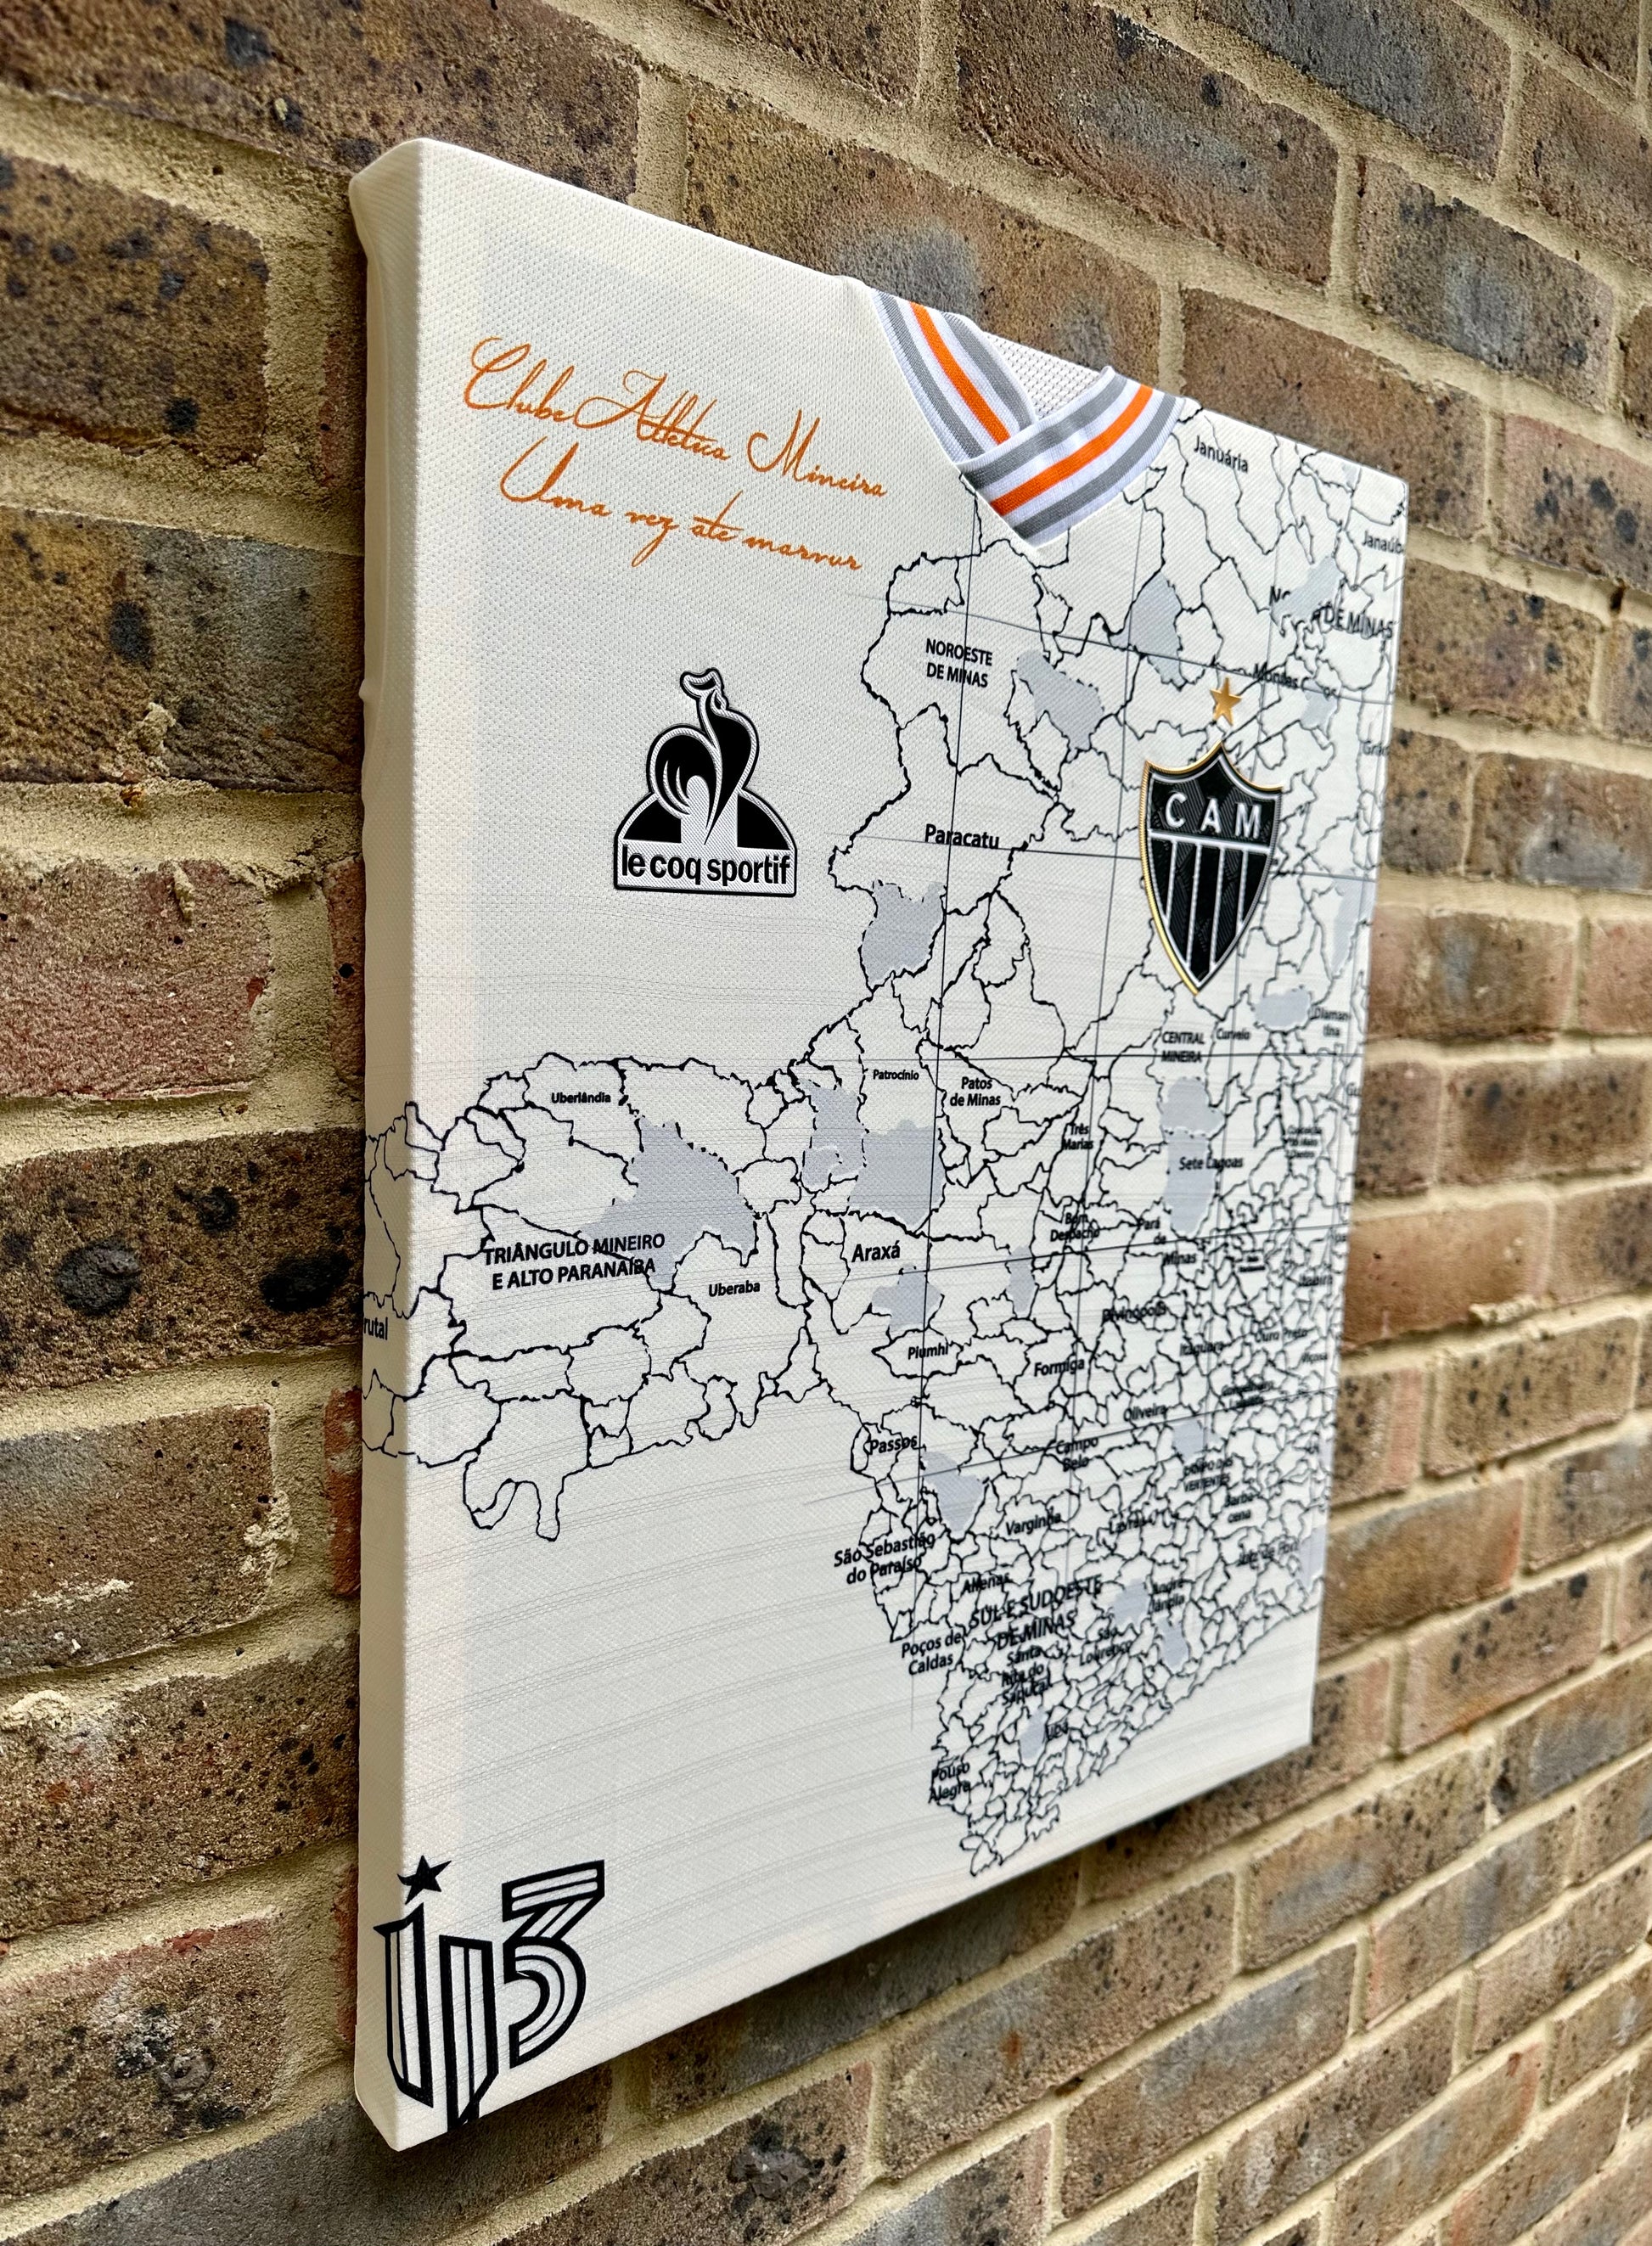 Clube Atlético Mineiro
Uma vez até morrer
Januária
Janaúb
DE MINAS
NOROESTE
DE MINAS
Montes C
le coq sportif
Paracatu
CAM
Diaman
tina
CENTRAL
MINEIRA
Curvelo
Uberlândia
Patrocínio
Patos
de Minas
Três
Marias
Sete Lagoas
Bom
Despacho
Pará
de
Minas
TRIÂNGULO MINEIRO
E ALTO PARANAÍBA
Araxá
Uberaba
rutal
Divinópolis
Ouro Preto
Piumhi
Formiga
Itaguara
Viçosa
Oliveira
Passos
Campo
Belo
VERTENTES
Barba
cena
Varginha
Lavras
São Sebastião
do Paraíso
Alfenas
SUL E SUDOESTE
DE MINAS
Andre
lândia
Poços de
Caldas
Santa
Rita do
Sapucaí
São
Lourenço
Pouso
Alegre
113